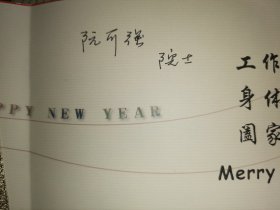 阮可强
院士
PPY NEW YEAR
工作
身体
阖家
Merry